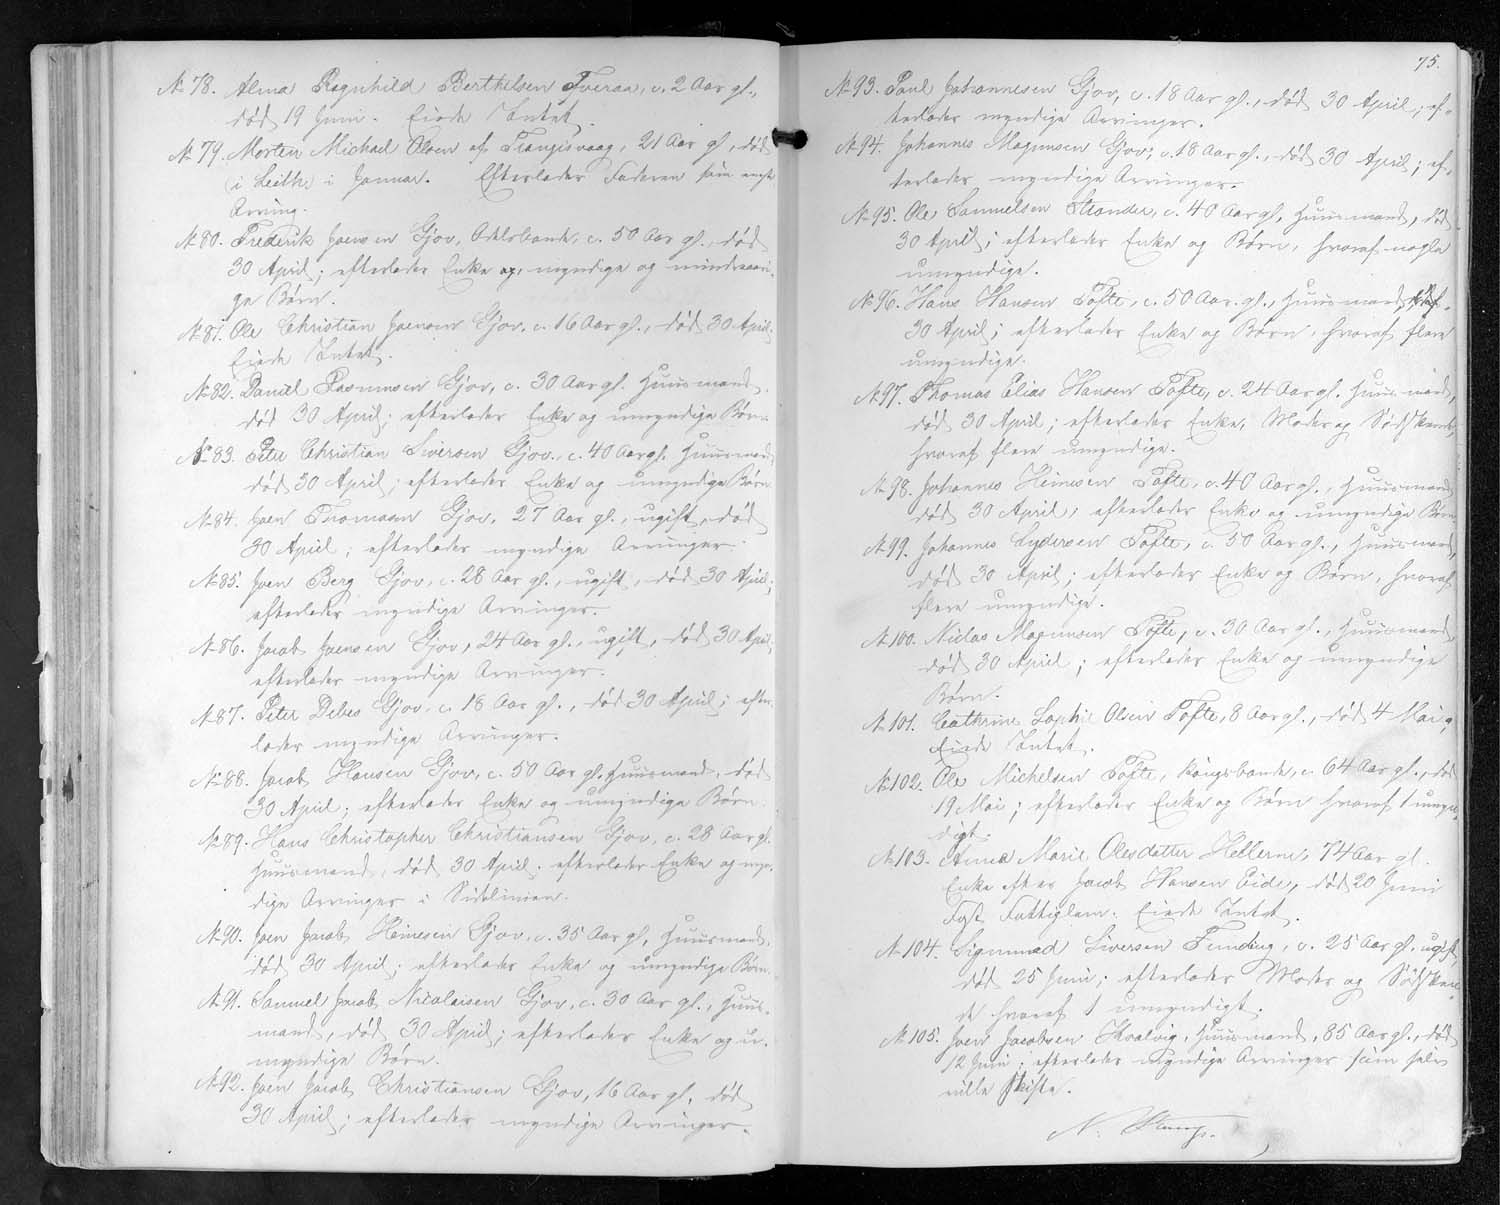 № 78. Alma Ragnhild Berthelsen Tveraa, c. 2 Aar gl.,
død 19 Juni. Eiede Intet.
№ 79. Morten Michael Olsen af Trangisvaag, 21 Aar gl, død
(i Leith) i Januar. Efterlader Faderen som eneste
Arving.
№ 80. Frederik Joensen Gjov, Odelsbonde, c. 50 Aar gl., død
30 April; efterlader Enke og myndige og mindreaari-
ge Børn.
№ 81. Ole Christian Joensen Gjov, c. 16 Aar gl., død 30 April.
Eiede Intet.
№ 82. Daniel Rasmussen Gjov, c. 30 Aar gl. Huusmand.
død 30 April; efterlader Enke og umyndige Børn.
№ 83. Peter Christian Siversen Gjov, c. 40 Aar gl. Huusmand
død 30 April; efterlader Enke og umyndige Børn
№ 84. Joen Thomasen Gjov, 27 Aar gl., ugift, død
30 April; efterlader myndige Arvinger.
№ 85. Joen Berg Gjov, c. 28 Aar gl., ugift, død 30 April;
efterlader myndige Arvinger.
№ 86. Jacob Joensen Gjov, 24 Aar gl., ugift, død 30 April,
efterlader myndige Arvinger.
№ 87. Peter Debes Gjov, c. 18 Aar gl., død 30 April; efter-
lader myndige Arvinger.
№ 88. Jacob Hansen Gjov, c. 50 Aar gl. Huusmand, død
30 April; efterlader Enke og umyndige Børn.
№ 89. Hans Christopher Christiansen Gjov, c. 28 Aar gl.
Huusmand, død 30 April; efterlader Enke og myn-
dige Arvinger i Sidelinien.
№ 90. Joen Jacob Heinesen Gjov, c. 35 Aar gl, Huusmand,
død 30 April; efterlader Enke og umyndige Børn.
№ 91. Samuel Jacob Nicolaisen Gjov, c. 30 Aar gl., Huus-
mand, død 30 April; efterlader Enke og u-
myndige Børn.
№ 92. Joen Jacob Christiansen Gjov, 16 Aar gl, død
30 April; efterlader myndige Arvinger.
75.
№ 93. Poul Johannesen Gjov, c. 18 Aar gl., død 30 April; ef-
terlader myndige Arvinger.
№ 94. Johannes Magnussen Gjov, c. 18 Aar gl., død 30 April; ef-
terlader myndige Arvinger.
№ 95. Ole Samuelsen Strander, c. 40 Aar gl, Huusmand, død
30 April; efterlader Enke og Børn, hvoraf nogle
umyndige.
№ 96. Hans Hansen Tofte, c. 50 Aar gl., Huusmand, død
30 April; efterlader Enke og Børn, hvoraf flere
umyndige.
№ 97. Thomas Elias Hansen Tofte, c. 24 Aar gl. Huusmand,
død 30 April; efterlader Enke, Moder og Sødskende,
hvoraf flere umyndige.
№ 98. Johannes Heinesen Tofte, c. 40 Aar gl., Huusmand
død 30 April, efterlader Enke og umyndige Børn
№ 99. Johannes Lydersen Tofte, c. 50 Aar gl., Huusmand,
død 30 April; efterlader Enke og Børn, hvoraf
flere umyndige.
№ 100. Niclas Magnussen Tofte, c. 30 Aar gl., Huusmand,
død 30 April; efterlader Enke og umyndige
Børn.
№ 101. Cathrine Sophie Olsen Tofte, 8 Aar gl., død 4 Mai,
Eiede Intet.
№ 102. Ole Michelsen Tofte, Kongsbonde, c. 64 Aar gl., død
19 Mai; efterlader Enke og Børn hvoraf 1 umyn-
digt.
№ 103. Anna Marie Olesdatter Hellerne, 74 Aar gl.
Enke efter Jacob Hansen Eide, død 20 Juni
Fast Fattiglem. Eiede Intet.
№ 104. Sigmund Siversen Funding, c. 25 Aar gl. ugift
død 25 Juni; efterlader Moder og Sødsken-
de hvoraf 1 umyndigt.
№ 105. Joen Jacobsen Hvalvig, Huusmand, 85 Aar gl., død
12 Juni; efterlader myndige Arvinger som selv
ville skifte.